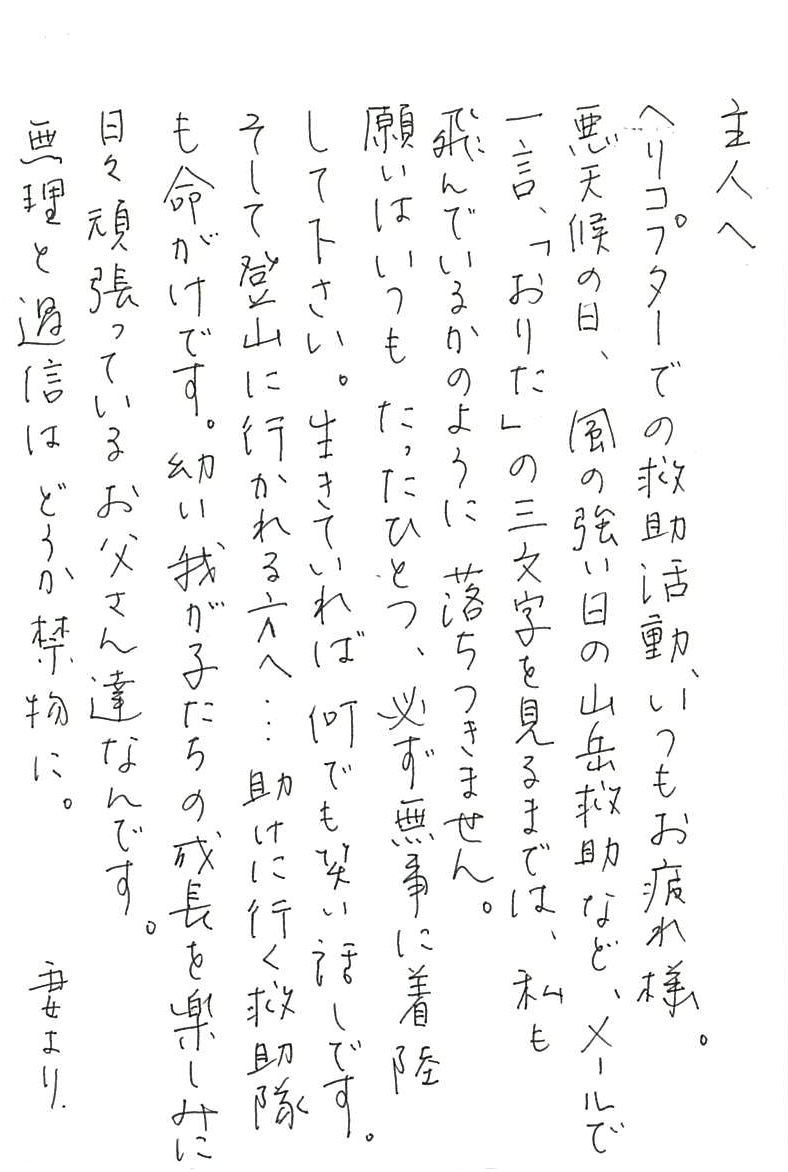 主人へ
ヘリコプターでの救助活動、いつもお疲れ様。
悪天候の日、風の強い日の山岳救助など、メールで
一言、「おりた」の三文字を見るまでは、私も
飛んでいるかのように落ちつきません。
願いはいつもたったひとつ、必ず無事に着陸
して下さい。生きていれば何でも笑い話しです。
そして登山に行かれる方へ…助けに行く救助隊
も命がけです。幼い我が子たちの成長を楽しみに
日々頑張っているお父さん達なんです。
無理と過信はどうか禁物に。
妻より.